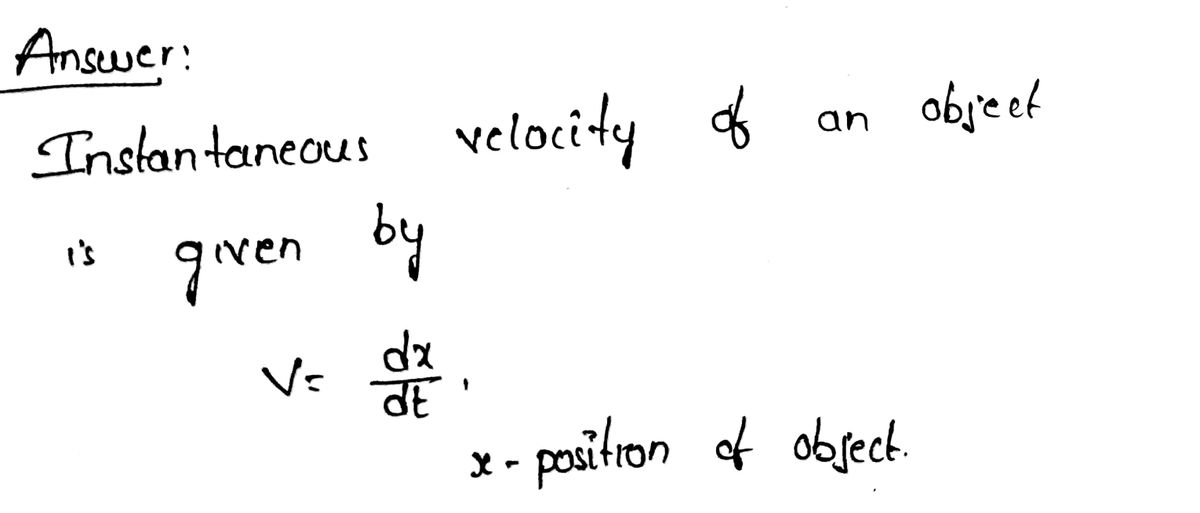 Answer:
Instantaneous velocity of an object
is given by
V = dx/dt,
x - position of object.